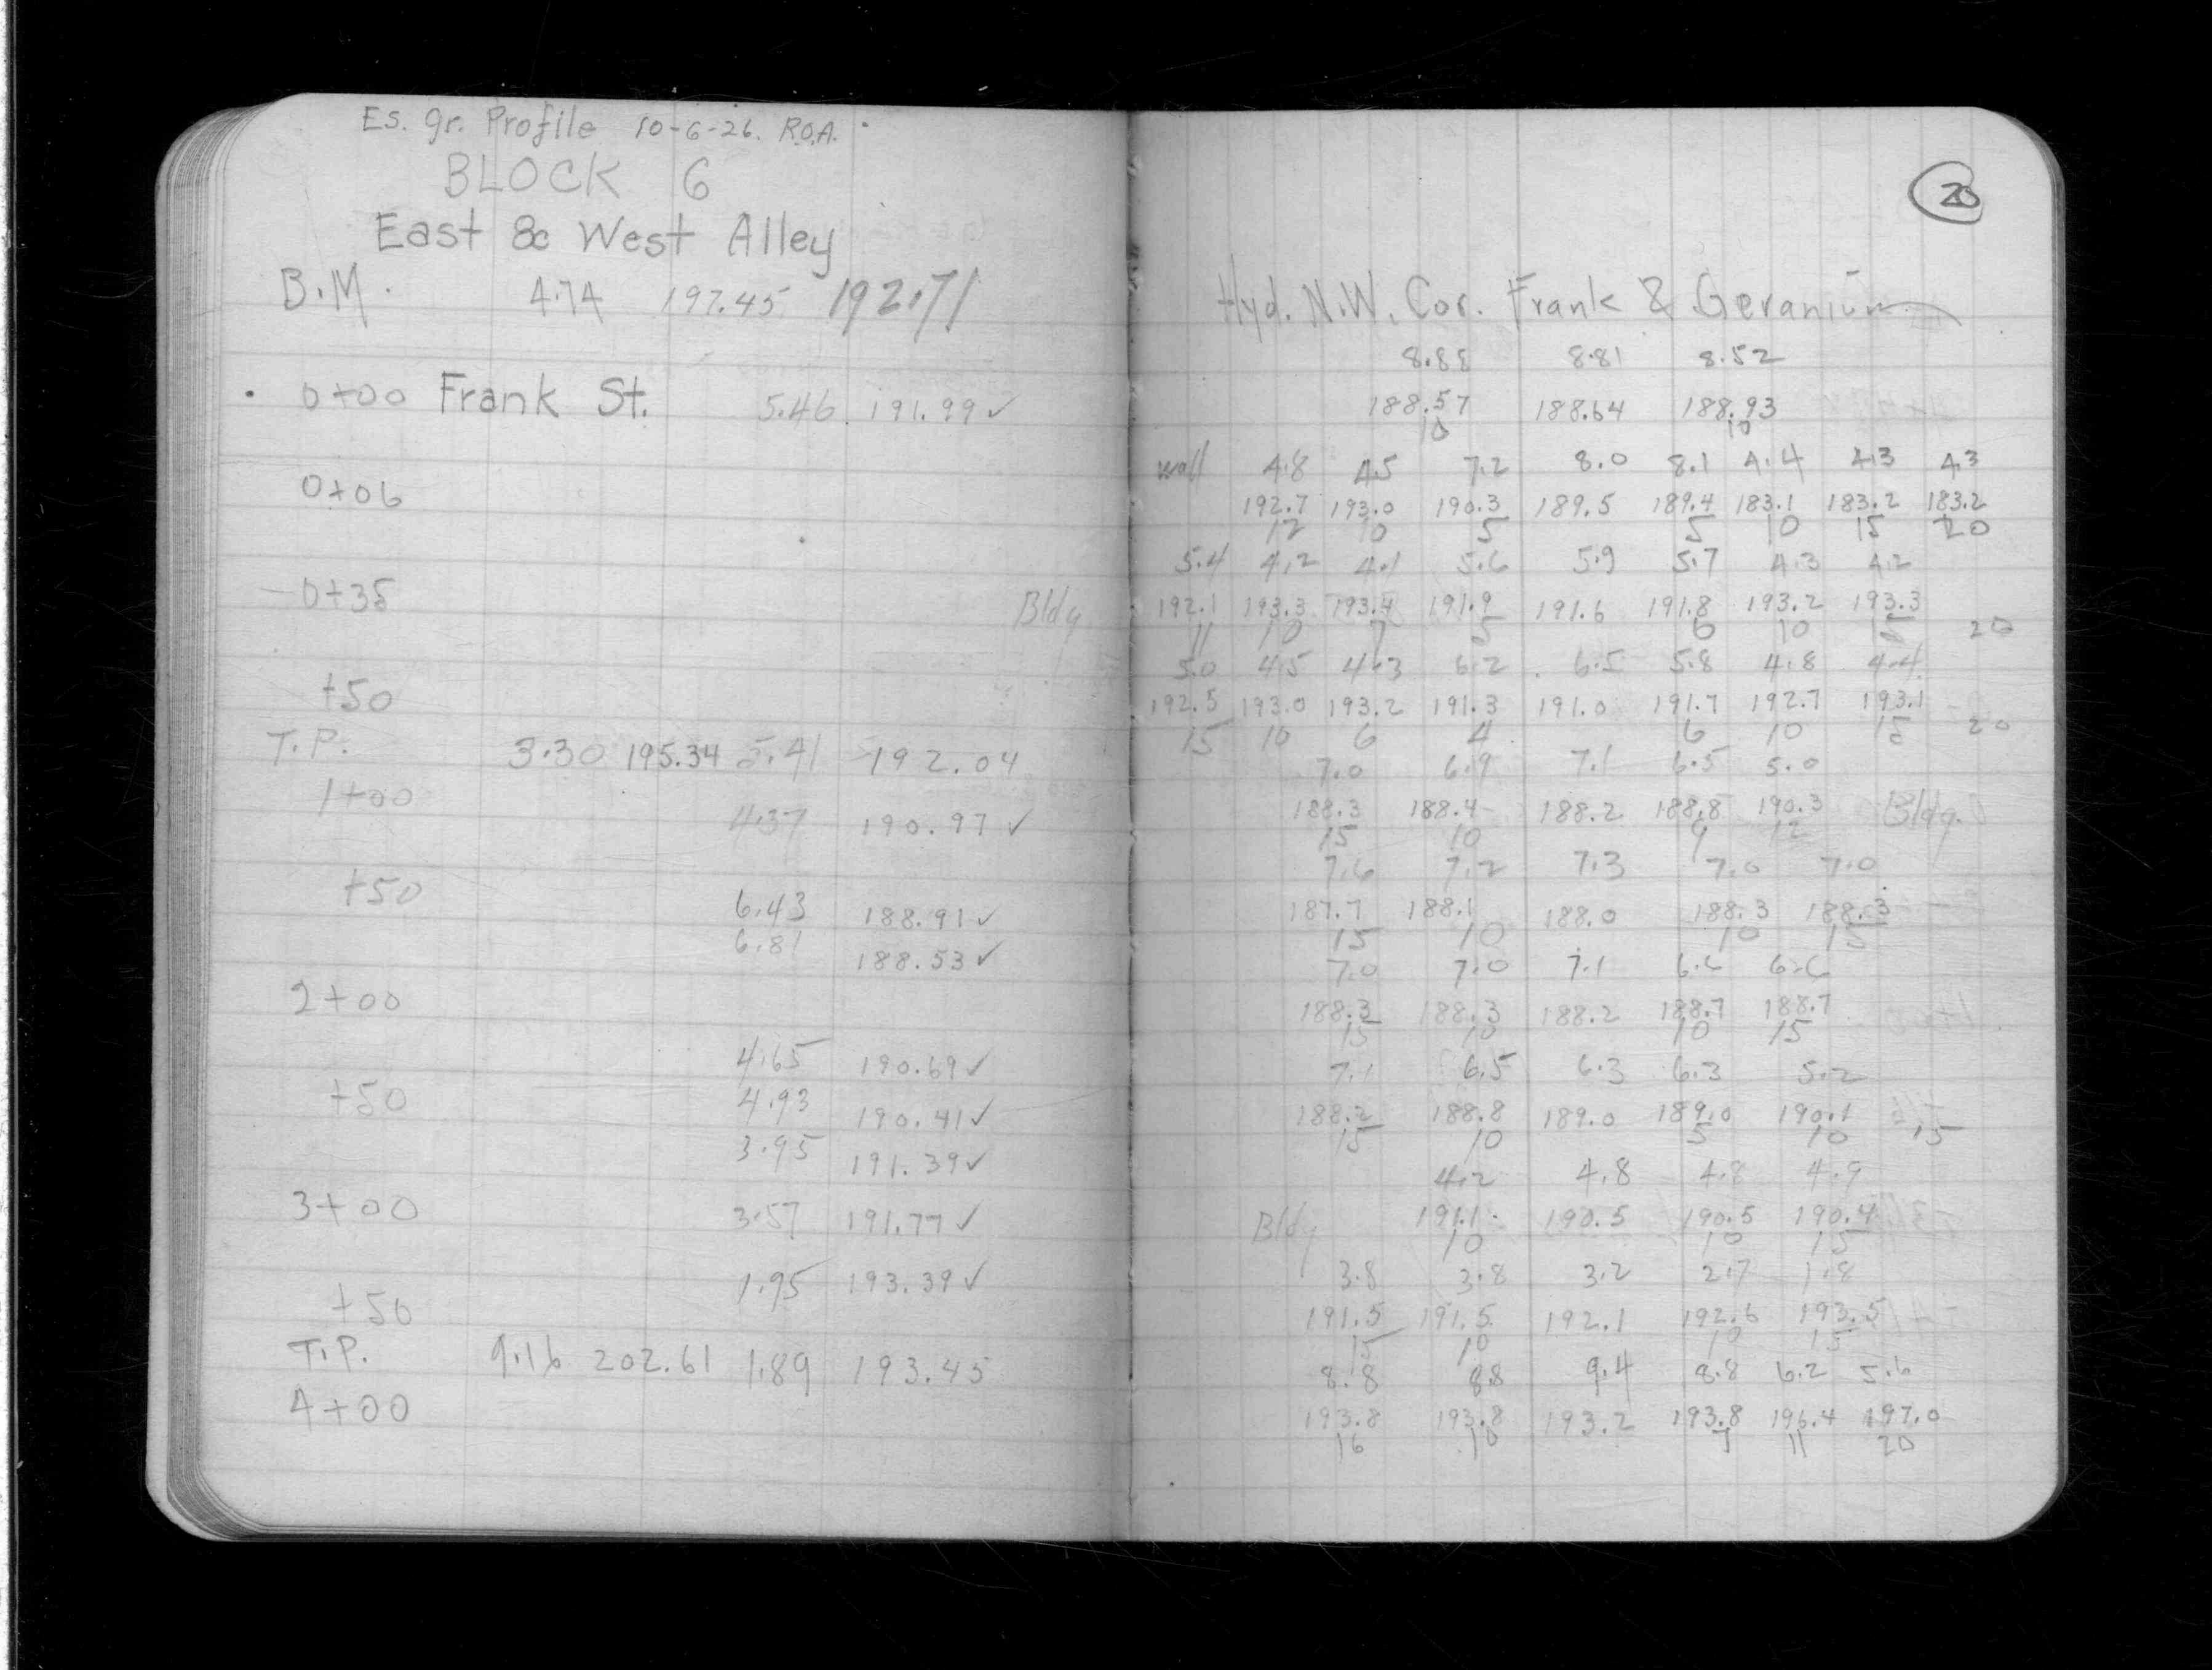 Es. gr. Profile 10-6-26. R.O.A.
BLOCK 6
East & West Alley
B.M. 4.74 197.45 192.71
0+00 Frank St. 5.46 191.99 ✓
0+06
0+35
+50
T.P. 3.30 195.34 5.41 192.04
1+00
4.37 190.97 ✓
+50
6.43 188.91 ✓
6.81 188.53 ✓
2+00
4.65 190.69 ✓
+50
4.93 190.41 ✓
3.95 191.39 ✓
3+00 3.57 191.77 ✓
1.95 193.39 ✓
+50
T.P. 9.16 202.61 1.89 193.45
4+00
20
Hyd. N.W. Cor. Frank & Geranium
8.88 8.81 8.52
188.57 188.64 188.93
10 10
wall 4.8 4.5 7.2 8.0 8.1 4.4 4.3 4.3
192.7 193.0 190.3 189.5 189.4 183.1 183.2 183.2
12 10 5 5 10 15 20
5.4 4.2 4.1 5.6 5.9 5.7 4.3 4.2
Bldg 192.1 193.3 193.4 191.9 191.6 191.8 193.2 193.3
11 10 7 5 6 10 15 20
5.0 4.5 4.3 6.2 6.5 5.8 4.8 4.4
192.5 193.0 193.2 191.3 191.0 191.7 192.7 193.1
15 10 6 4 6 10 15 20
7.0 6.9 7.1 6.5 5.0
188.3 188.4 188.2 188.8 190.3 Bldg.
15 10 9 12
7.6 7.2 7.3 7.0 7.0
187.7 188.1 188.0 188.3 188.3
15 10 10 15
7.0 7.0 7.1 6.6 6.6
188.3 188.3 188.2 188.7 188.7
15 10 10 15
7.1 6.5 6.3 6.3 5.2
188.2 188.8 189.0 189.0 190.1
15 10 5 10 15
4.2 4.8 4.8 4.9
Bldg 191.1 190.5 190.5 190.4
10 10 15
3.8 3.8 3.2 2.7 1.8
191.5 191.5 192.1 192.6 193.5
15 10 10 15
8.8 8.8 9.4 8.8 6.2 5.6
193.8 193.8 193.2 193.8 196.4 197.0
16 10 7 11 20